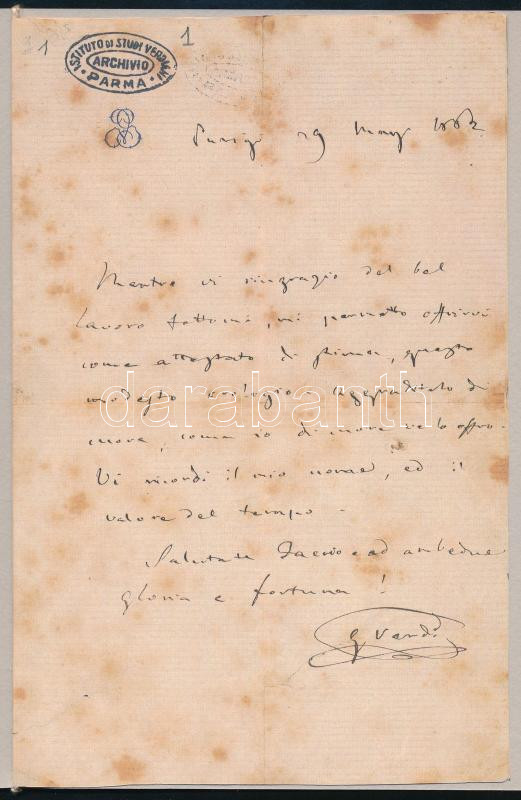 1
1
ISTITUTO DI STUDI VERDIANI
ARCHIVIO
PARMA
Parigi 29 Mag 1882
Mentre vi ringrazio del bel
lavoro fattomi, mi permetto offrirvi
come attestato di stima, questo
modesto orologio aggraditelo di
more, come io di more ve lo offro.
Vi ricordi il mio nome, ed il
valore del tempo.
Salutate Faccio e ad ambedue
gloria e fortuna!
G Verdi
darabanth